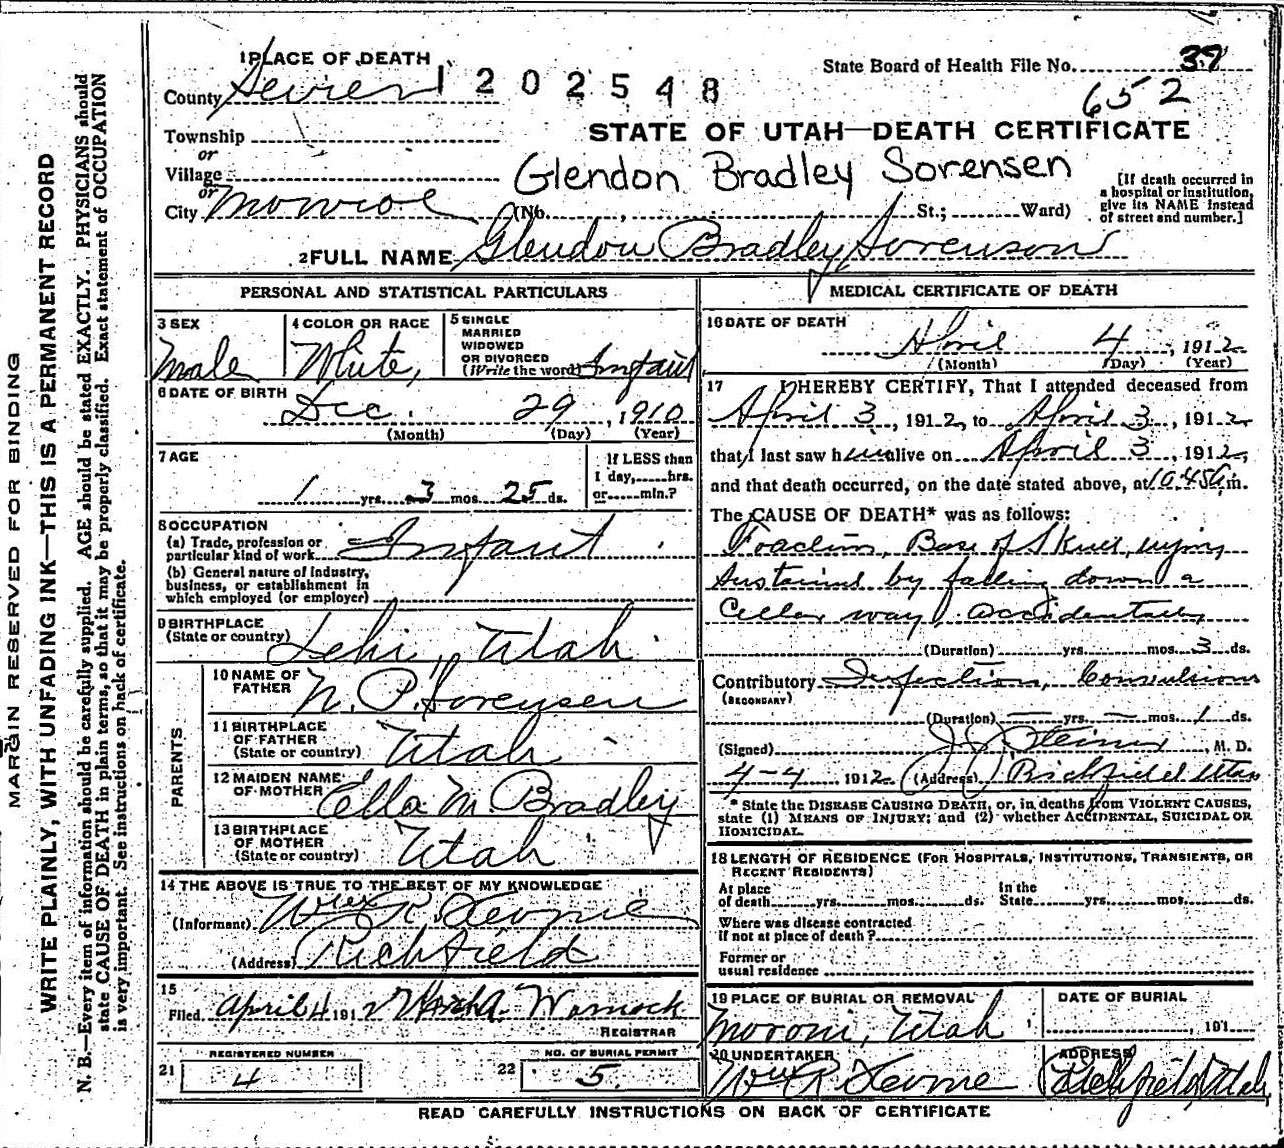 MARGIN RESERVED FOR BINDING
WRITE PLAINLY, WITH UNFADING INK—THIS IS A PERMANENT RECORD
N. B.—Every item of information should be carefully supplied. AGE should be stated EXACTLY. PHYSICIANS should
state CAUSE OF DEATH in plain terms, so that it may be properly classified. Exact statement of OCCUPATION
is very important. See instructions on back of certificate.
1 PLACE OF DEATH
State Board of Health File No. 37
County Sevier 1202548
652
Township
STATE OF UTAH—DEATH CERTIFICATE
or
Village
Glendon Bradley Sorensen
[If death occurred in
a hospital or institution,
give its NAME instead
of street and number.]
or
City Monroe (No. , St.; Ward)
2 FULL NAME Glendon Bradley Sorenson
PERSONAL AND STATISTICAL PARTICULARS
3 SEX
Male
4 COLOR OR RACE
White,
5 SINGLE
MARRIED
WIDOWED
OR DIVORCED
(Write the word) Infant
6 DATE OF BIRTH
Dec. 29, 1910
(Month) (Day) (Year)
7 AGE
1 yrs. 3 mos. 25 ds.
If LESS than
1 day, hrs.
or min.?
8 OCCUPATION
(a) Trade, profession or
particular kind of work Infant
(b) General nature of industry,
business, or establishment in
which employed (or employer)
9 BIRTHPLACE
(State or country) Lehi, Utah
PARENTS
10 NAME OF
FATHER N. P. Sorensen
11 BIRTHPLACE
OF FATHER
(State or country) Utah
12 MAIDEN NAME
OF MOTHER Ella M Bradley
13 BIRTHPLACE
OF MOTHER
(State or country) Utah
14 THE ABOVE IS TRUE TO THE BEST OF MY KNOWLEDGE
(Informant) Wm R.
(Address) Richfield
15
Filed April 4 1912 Warnock
REGISTRAR
21 REGISTERED NUMBER
4
22 NO. OF BURIAL PERMIT
5
MEDICAL CERTIFICATE OF DEATH
16 DATE OF DEATH
April 4, 1912
(Month) (Day) (Year)
17 I HEREBY CERTIFY, That I attended deceased from
April 3, 1912, to April 3, 1912
that I last saw him alive on April 3, 1912,
and that death occurred, on the date stated above, at 10.45 a m.
The CAUSE OF DEATH* was as follows:
Base of Skull, injury
sustained by falling down a
Cellar way accidentally
(Duration) yrs. mos. 3 ds.
Contributory Infection, Convulsions
(SECONDARY)
(Duration) — yrs. — mos. 1 ds.
(Signed) J. J. Steiner, M. D.
4-4 1912 (Address) Richfield Utah
* State the DISEASE CAUSING DEATH, or, in deaths from VIOLENT CAUSES,
state (1) MEANS OF INJURY; and (2) whether ACCIDENTAL, SUICIDAL OR
HOMICIDAL.
18 LENGTH OF RESIDENCE (FOR HOSPITALS, INSTITUTIONS, TRANSIENTS, OR
RECENT RESIDENTS)
At place
of death yrs. mos. ds.
In the
State yrs. mos. ds.
Where was disease contracted
If not at place of death?
Former or
usual residence
19 PLACE OF BURIAL OR REMOVAL
Moroni, Utah
DATE OF BURIAL
, 191
20 UNDERTAKER
Wm R.
ADDRESS
Richfield, Utah,
READ CAREFULLY INSTRUCTIONS ON BACK OF CERTIFICATE